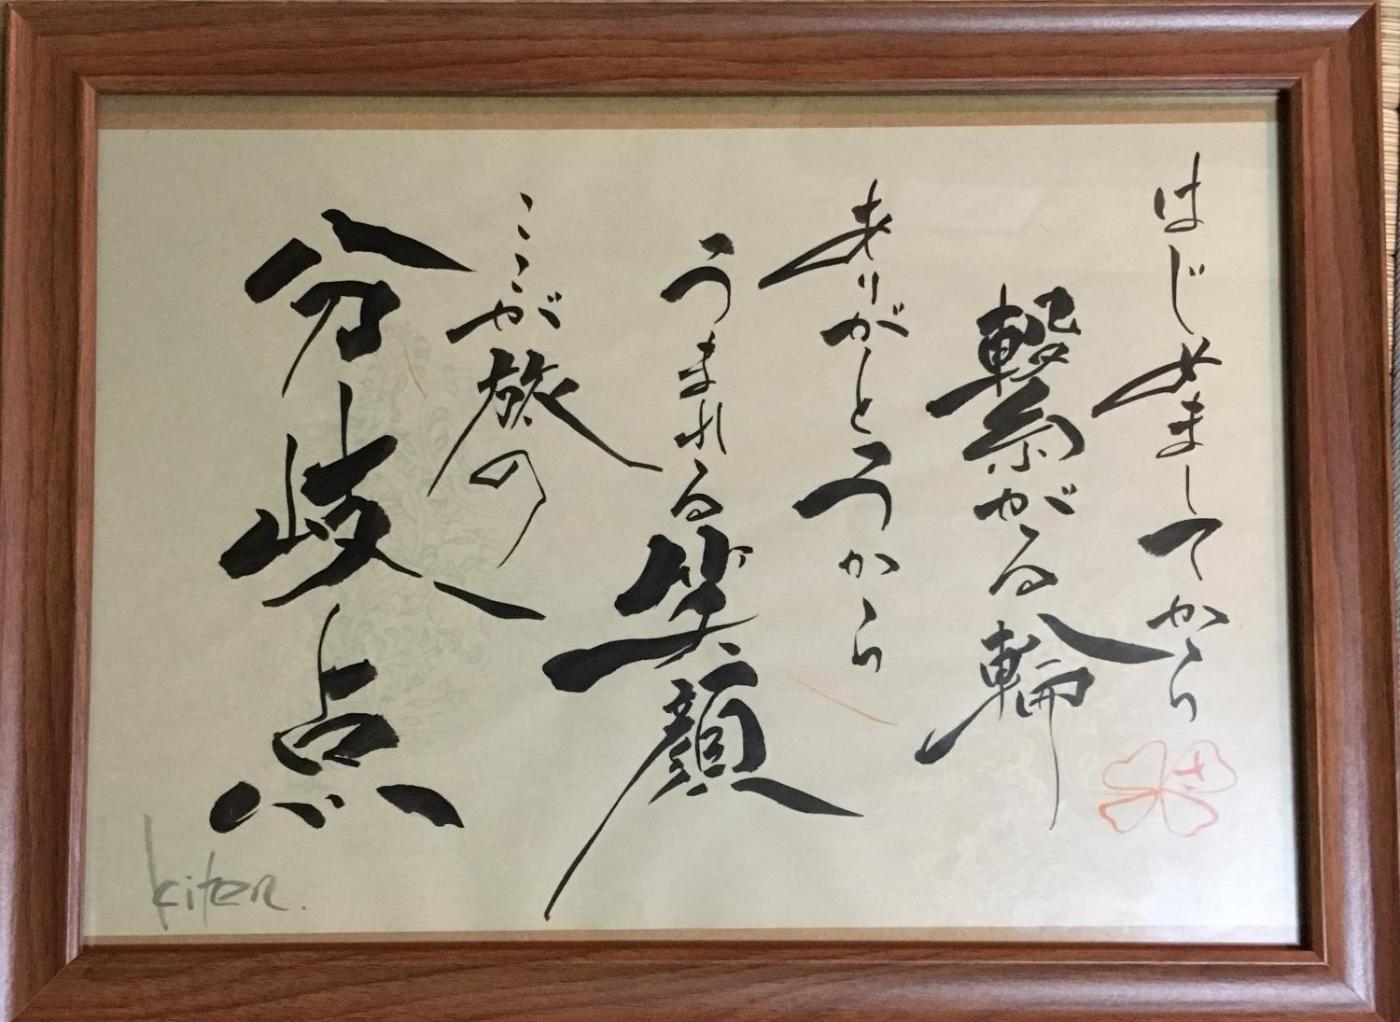 はじめましてから
繋がる輪
ありがとうから
うまれる笑顔
ここが旅の
分岐点
kiten.